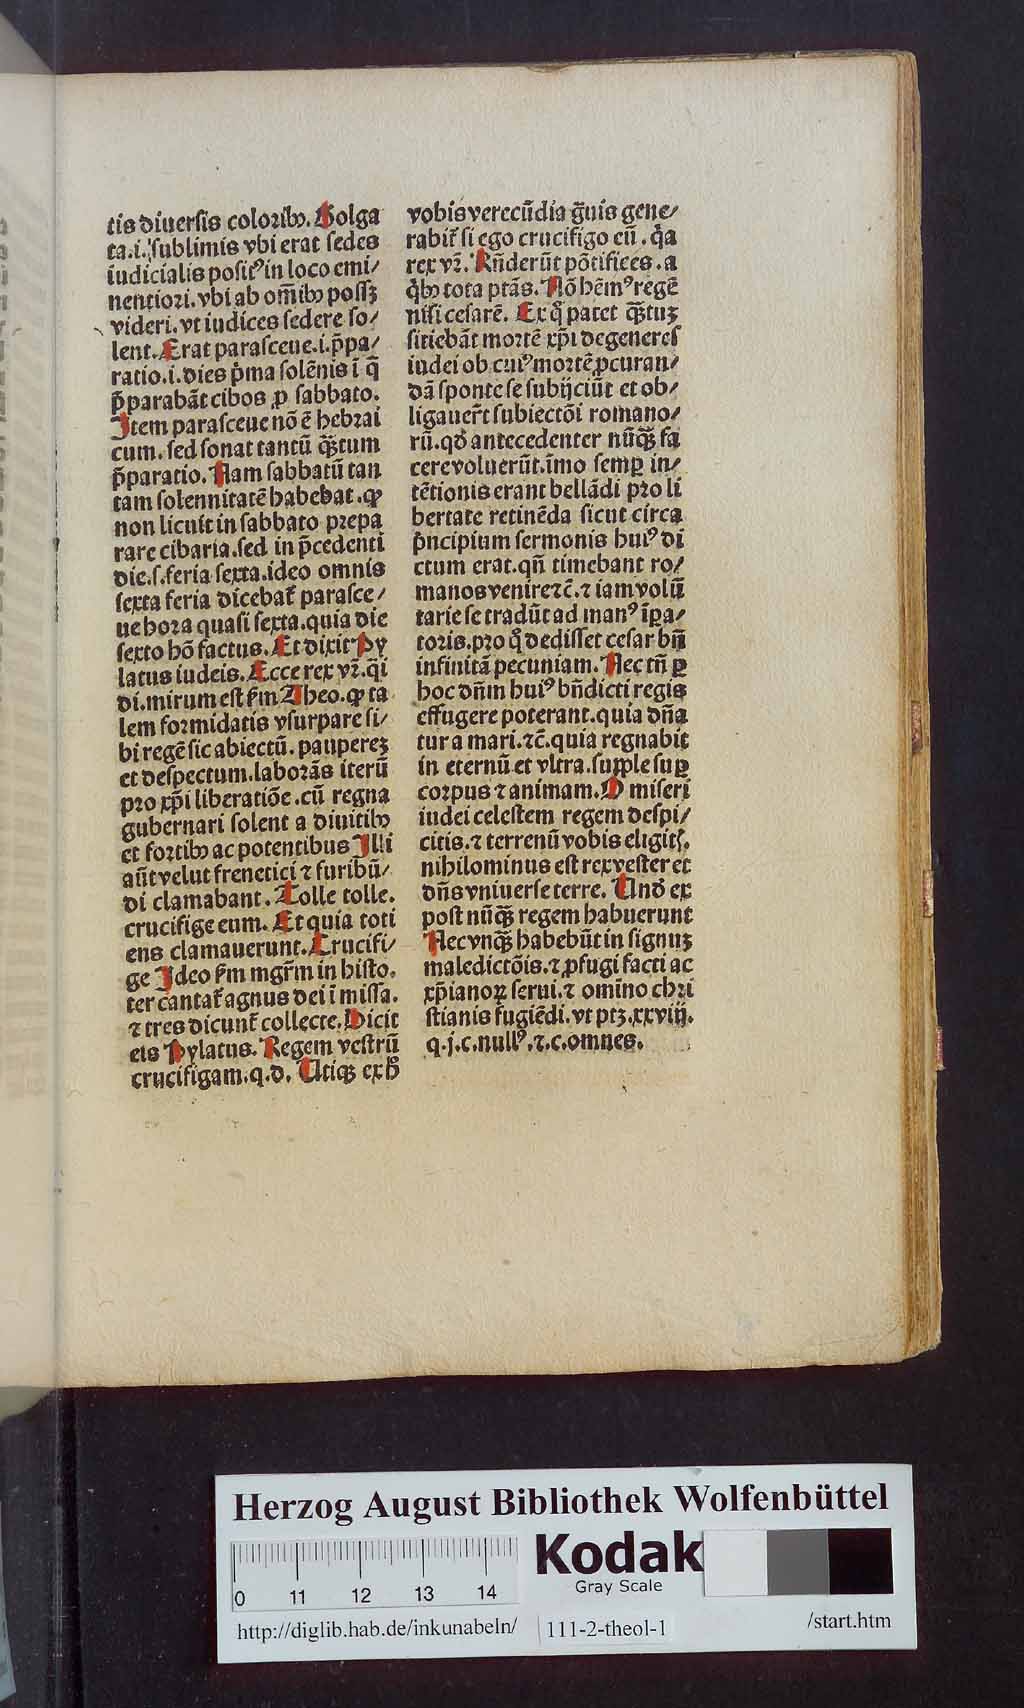 tis diuersis coloribꝫ. Golga
ta.i. sublimis vbi erat sedes
iudicialis positꝰ in loco emi/
nentiori. vbi ab om̄ibꝫ possꝫ
videri. vt iudices sedere so/
lent. Erat parasceue .i. p̄pa/
ratio.i. dies p̄ma solēnis ī q̄
p̄parabāt cibos ꝓ sabbato.
Item parasceue nō ē hebrai
cum. sed sonat tantū qᷓtum
p̄paratio. Nam sabbatū tan
tam solennitatē habebat .ꝙ
non licuit in sabbato prepa
rare cibaria. sed in p̄cedenti
die.s. feria sexta. ideo omnis
sexta feria dicebat᷑ parasce/
ue hora quasi sexta. quia die
sexto hō factus. Et dixit Py
latus iudeis. Ecce rex vr̄. q̄i
di. mirum est ẜm Theo. ꝙ ta
lem formidatis vsurpare si/
bi regē sic abiectū. paupereꝫ
et despectum. laborās iterū
pro xp̄i liberatiōe. cū regna
gubernari solent a diuitibꝫ
et fortibꝫ ac potentibus Illi
aūt velut frenetici ⁊ furibū/
di clamabant. Tolle tolle.
crucifige eum. Et quia toti
ens clamauerunt. Crucifi/
ge Ideo ẜm mgr̄m in histo.
ter cantat᷑ agnus dei ī missa.
⁊ tres dicunt᷑ collecte. Dicit
eis Pylatus. Regem vestrū
crucifigam. q.d. Utiqꝫ ex hͦ
vobis verecūdia gᷓuis gene/
rabit᷑ si ego crucifigo eū. qͥa
rex vr̄. Rn̄derūt pōtifices. a
qͥbꝫ tota ptās. Nō hēmꝰ regē
nisi cesarē. Ex qͦ patet qᷓtuꝫ
sitiebāt mortē xp̄i degeneres
iudei ob cuiꝰ mortē ꝓcuran/
dā sponte se subijciūt et ob/
ligauer̄t subiectōi romano/
rū. qd̓ antecedenter nūqᷓ fa
cere voluerūt. īmo semꝑ in/
tētionis erant bellādi pro li
bertate retinēda sicut circa
p̄ncipium sermonis huiꝰ di
ctum erat. qn̄ timebant ro/
manos venire ⁊c̄. ⁊ iam volū
tarie se tradūt ad manꝰ īꝑa/
toris. pro qͦ dedisset cesar bn̄
infinitā pecuniam. Nec tn̄ ꝑ
hoc dn̄m huiꝰ bn̄dicti regis
effugere poterant. quia dn̄a
tur a mari. ⁊c̄. quia regnabit
in eternū et vltra. supple suꝑ
corpus ⁊ animam. O miseri
iudei celestem regem despi/
citis. ⁊ terrenū vobis eligitꝭ.
nihilominus est rex vester et
dn̄s vniuerse terre. Und̓ ex
post nūqᷓ regem habuerunt
Nec vnqᷓ habebūt in signuꝫ
maledictōis. ⁊ ꝓfugi facti ac
xp̄ianoꝝ serui. ⁊ omīno chri
stianis fugiēdi. vt ptꝫ. xxviij.
q.j.c. nullꝰ. ⁊.c. omnes.
Herzog August Bibliothek Wolfenbüttel
Kodak
Gray Scale
0 11 12 13 14
http://diglib.hab.de/inkunabeln/ 111-2-theol-1 /start.htm